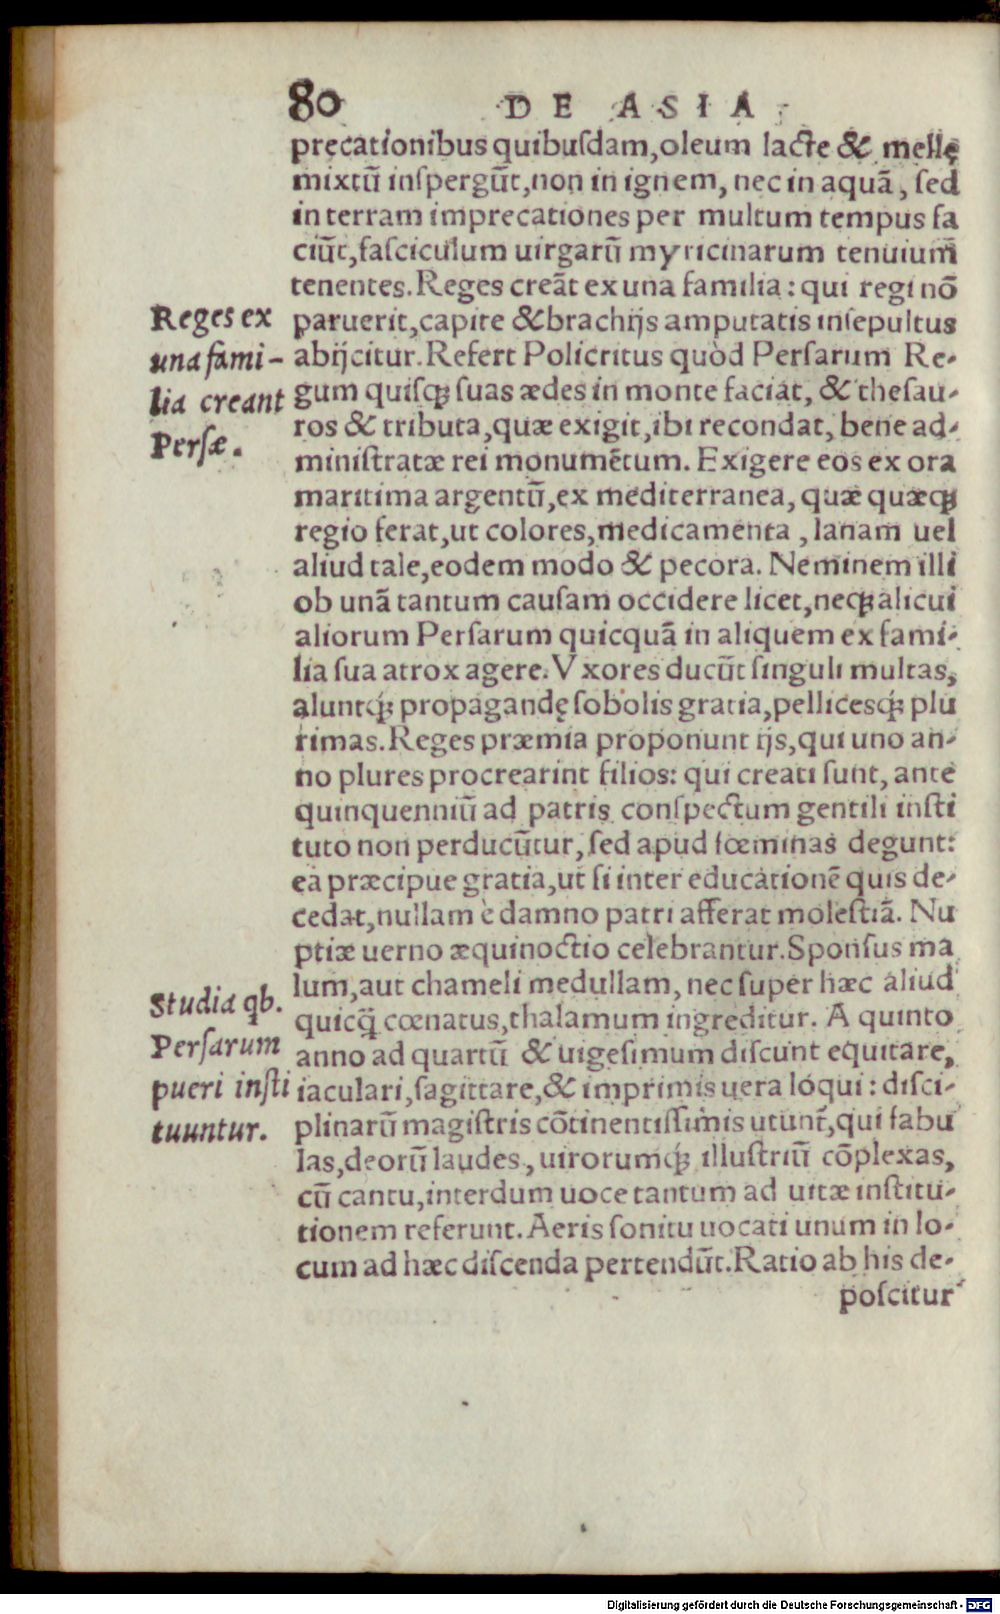 80 DE ASIA
precationibus quibusdam,oleum lacte & mellę
mixtũ inspergũt,non in ignem, nec in aquã, sed
in terram imprecationes per multum tempus fa
ciũt,fasciculum uirgarũ myricinarum tenuium
tenentes.Reges creãt ex una familia: qui regi nõ
paruerit,capite & brachijs amputatis insepultus
abijcitur. Refert Policritus quòd Persarum Re-
gum quisq; suas ædes in monte faciat, & thesau-
ros & tributa,quæ exigit,ibi recondat, bene ad-
ministratæ rei monumẽtum. Exigere eos ex ora
maritima argentũ,ex mediterranea, quæ quæq;
regio ferat,ut colores,medicamenta ,lanam uel
aliud tale,eodem modo & pecora. Neminem illi
ob unã tantum causam occidere licet,neq; alicui
aliorum Persarum quicquã in aliquem ex fami-
lia sua atrox agere. Vxores ducũt singuli multas,
aluntq́; propagandę sobolis gratia,pellicesq́; plu
rimas.Reges præmia proponunt ijs,qui uno an-
no plures procrearint filios: qui creati sunt, ante
quinquenniũ ad patris conspectum gentili insti
tuto non perducũtur, sed apud fœminas degunt:
ea præcipue gratia,ut si inter educationẽ quis de-
cedat,nullam è damno patri afferat molestiã. Nu
ptiæ uerno æquinoctio celebrantur.Sponsus ma
lum,aut chameli medullam, nec super hæc aliud
quicq̃ cœnatus,thalamum ingreditur. A quinto
anno ad quartũ & uigesimum discunt equitare,
iaculari,sagittare,& imprimis uera loqui: disci-
plinarũ magistris cõtinentissimis utunt̃,qui fabu
las,deorũ laudes, uirorumq́; illustriũ cõplexas,
cũ cantu,interdum uoce tantum ad uitæ institu-
tionem referunt. Aeris sonitu uocati unum in lo-
cum ad hæc discenda pertendũt.Ratio ab his de-
poscitur
Reges ex
una fami-
lia creant
Persæ.
Studia qb.
Persarum
pueri insti
tuuntur.
Digitalisierung gefördert durch die Deutsche Forschungsgemeinschaft - DFG